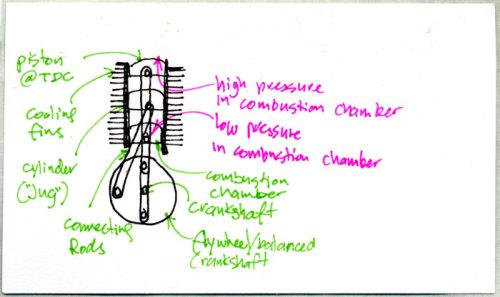 piston
@TDC
cooling
fins
cylinder
("Jug")
connecting
Rods
high pressure
in combustion chamber
low pressure
in combustion chamber
combustion
chamber
crankshaft
flywheel/balanced
crankshaft